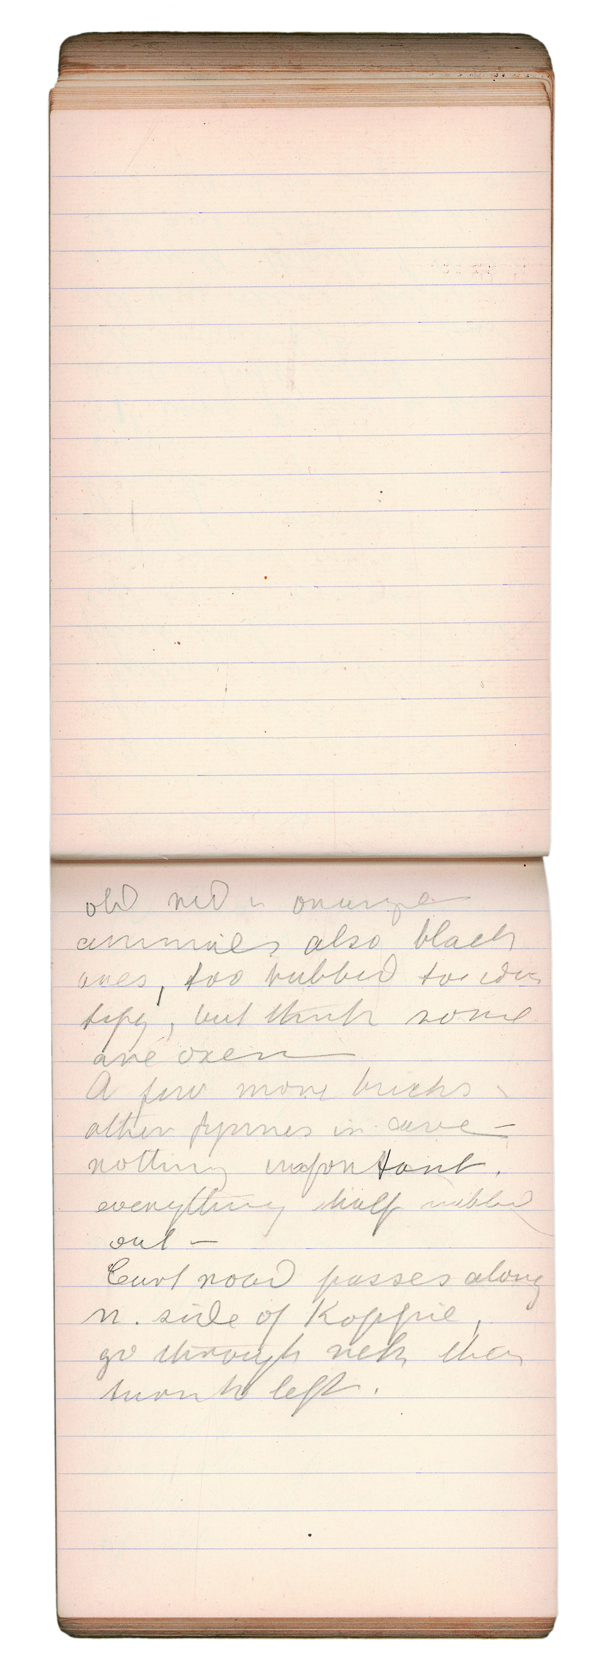 old red & orange
animals also black
ones, too rubbed to iden
tify, but think some
are oxen —
A few more bucks &
other figures in cave —
nothing important.
everything half rubbed
out —
Cart road passes along
n. side of Koppie,
go through nek then
turn to left.